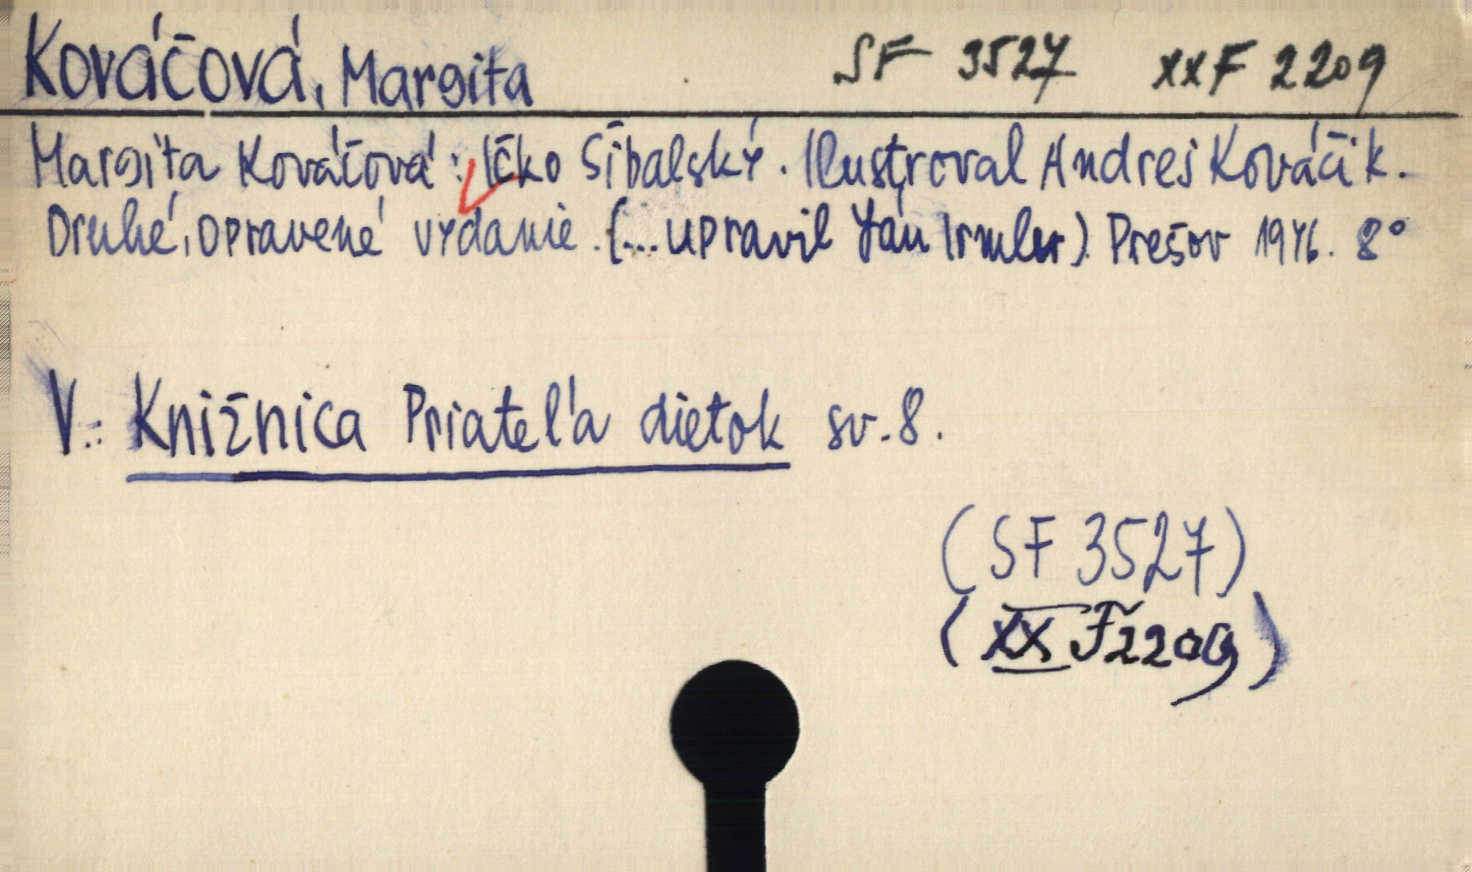 Kováčová, Margita SF 3527 xxF 2209
Margita Kováčová: Ičko Šibalský. Ilustroval Andrej Kováčik.
Druhé, opravené vydanie. (... upravil Ján Irmler). Prešov 1946. 8°
V: Knižnica Priateľa dietok sv. 8.
(SF 3527)
(XX F2209)